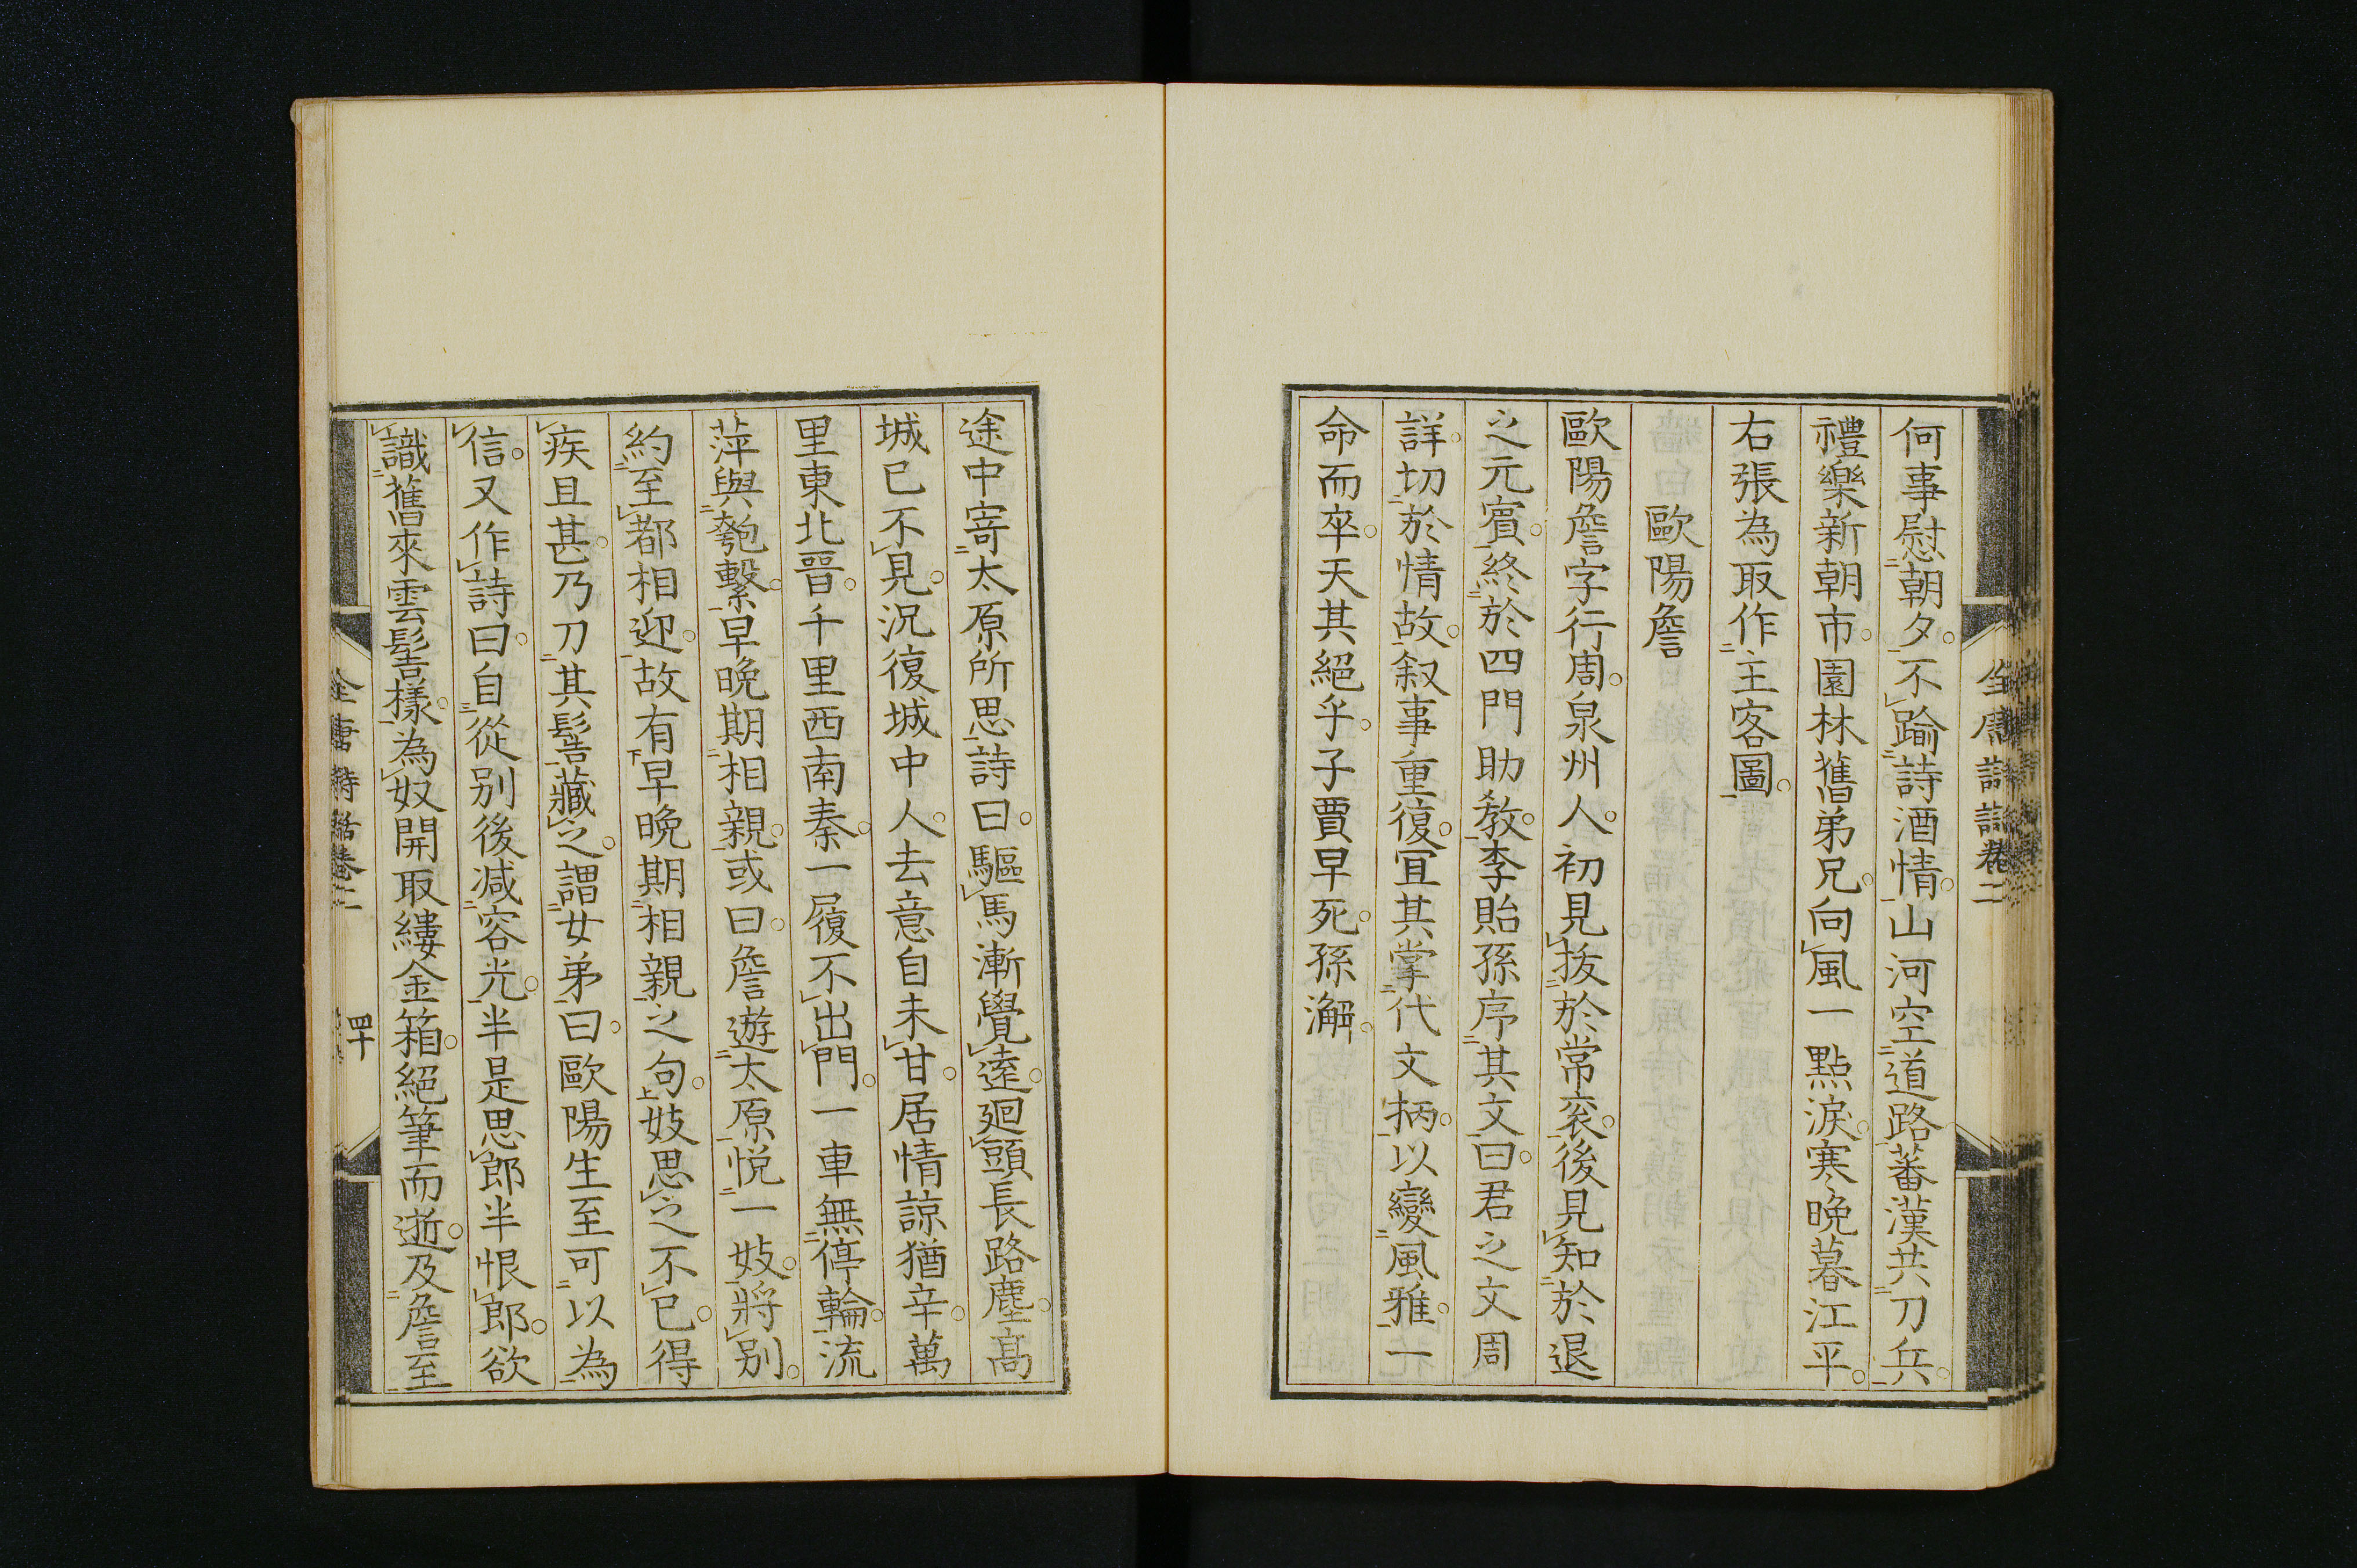 全唐詩話卷二
何事慰朝夕不踰詩酒情山河空道路蕃漢共刀兵
禮樂新朝市園林舊弟兄向風一點淚寒晚暮江平
右張為取作主客圖
歐陽詹
歐陽詹字行周泉州人初見拔於常袞後見知於退
之元賓終於四門助教李貽孫序其文曰君之文周
詳切於情故叙事重復宜其掌代文柄以變風雅一
命而卒天其絕乎子賈早死孫澥
途中寄太原所思詩曰驅馬漸覺遠廻頭長路塵高
城已不見況復城中人去意自未甘居情諒猶辛萬
里東北晉千里西南秦一履不出門一車無停輪流
萍與匏繫早晚期相親或曰詹遊太原悦一妓將别
約至都相迎故有早晚期相親之句妓思之不已得
疾且甚乃刀其髻藏之謂女弟曰歐陽生至可以為
信又作詩曰自從别後減容光半是思郎半恨郎欲
識舊來雲髻樣為奴開取縷金箱絕筆而逝及詹至
全唐詩話卷二
四十